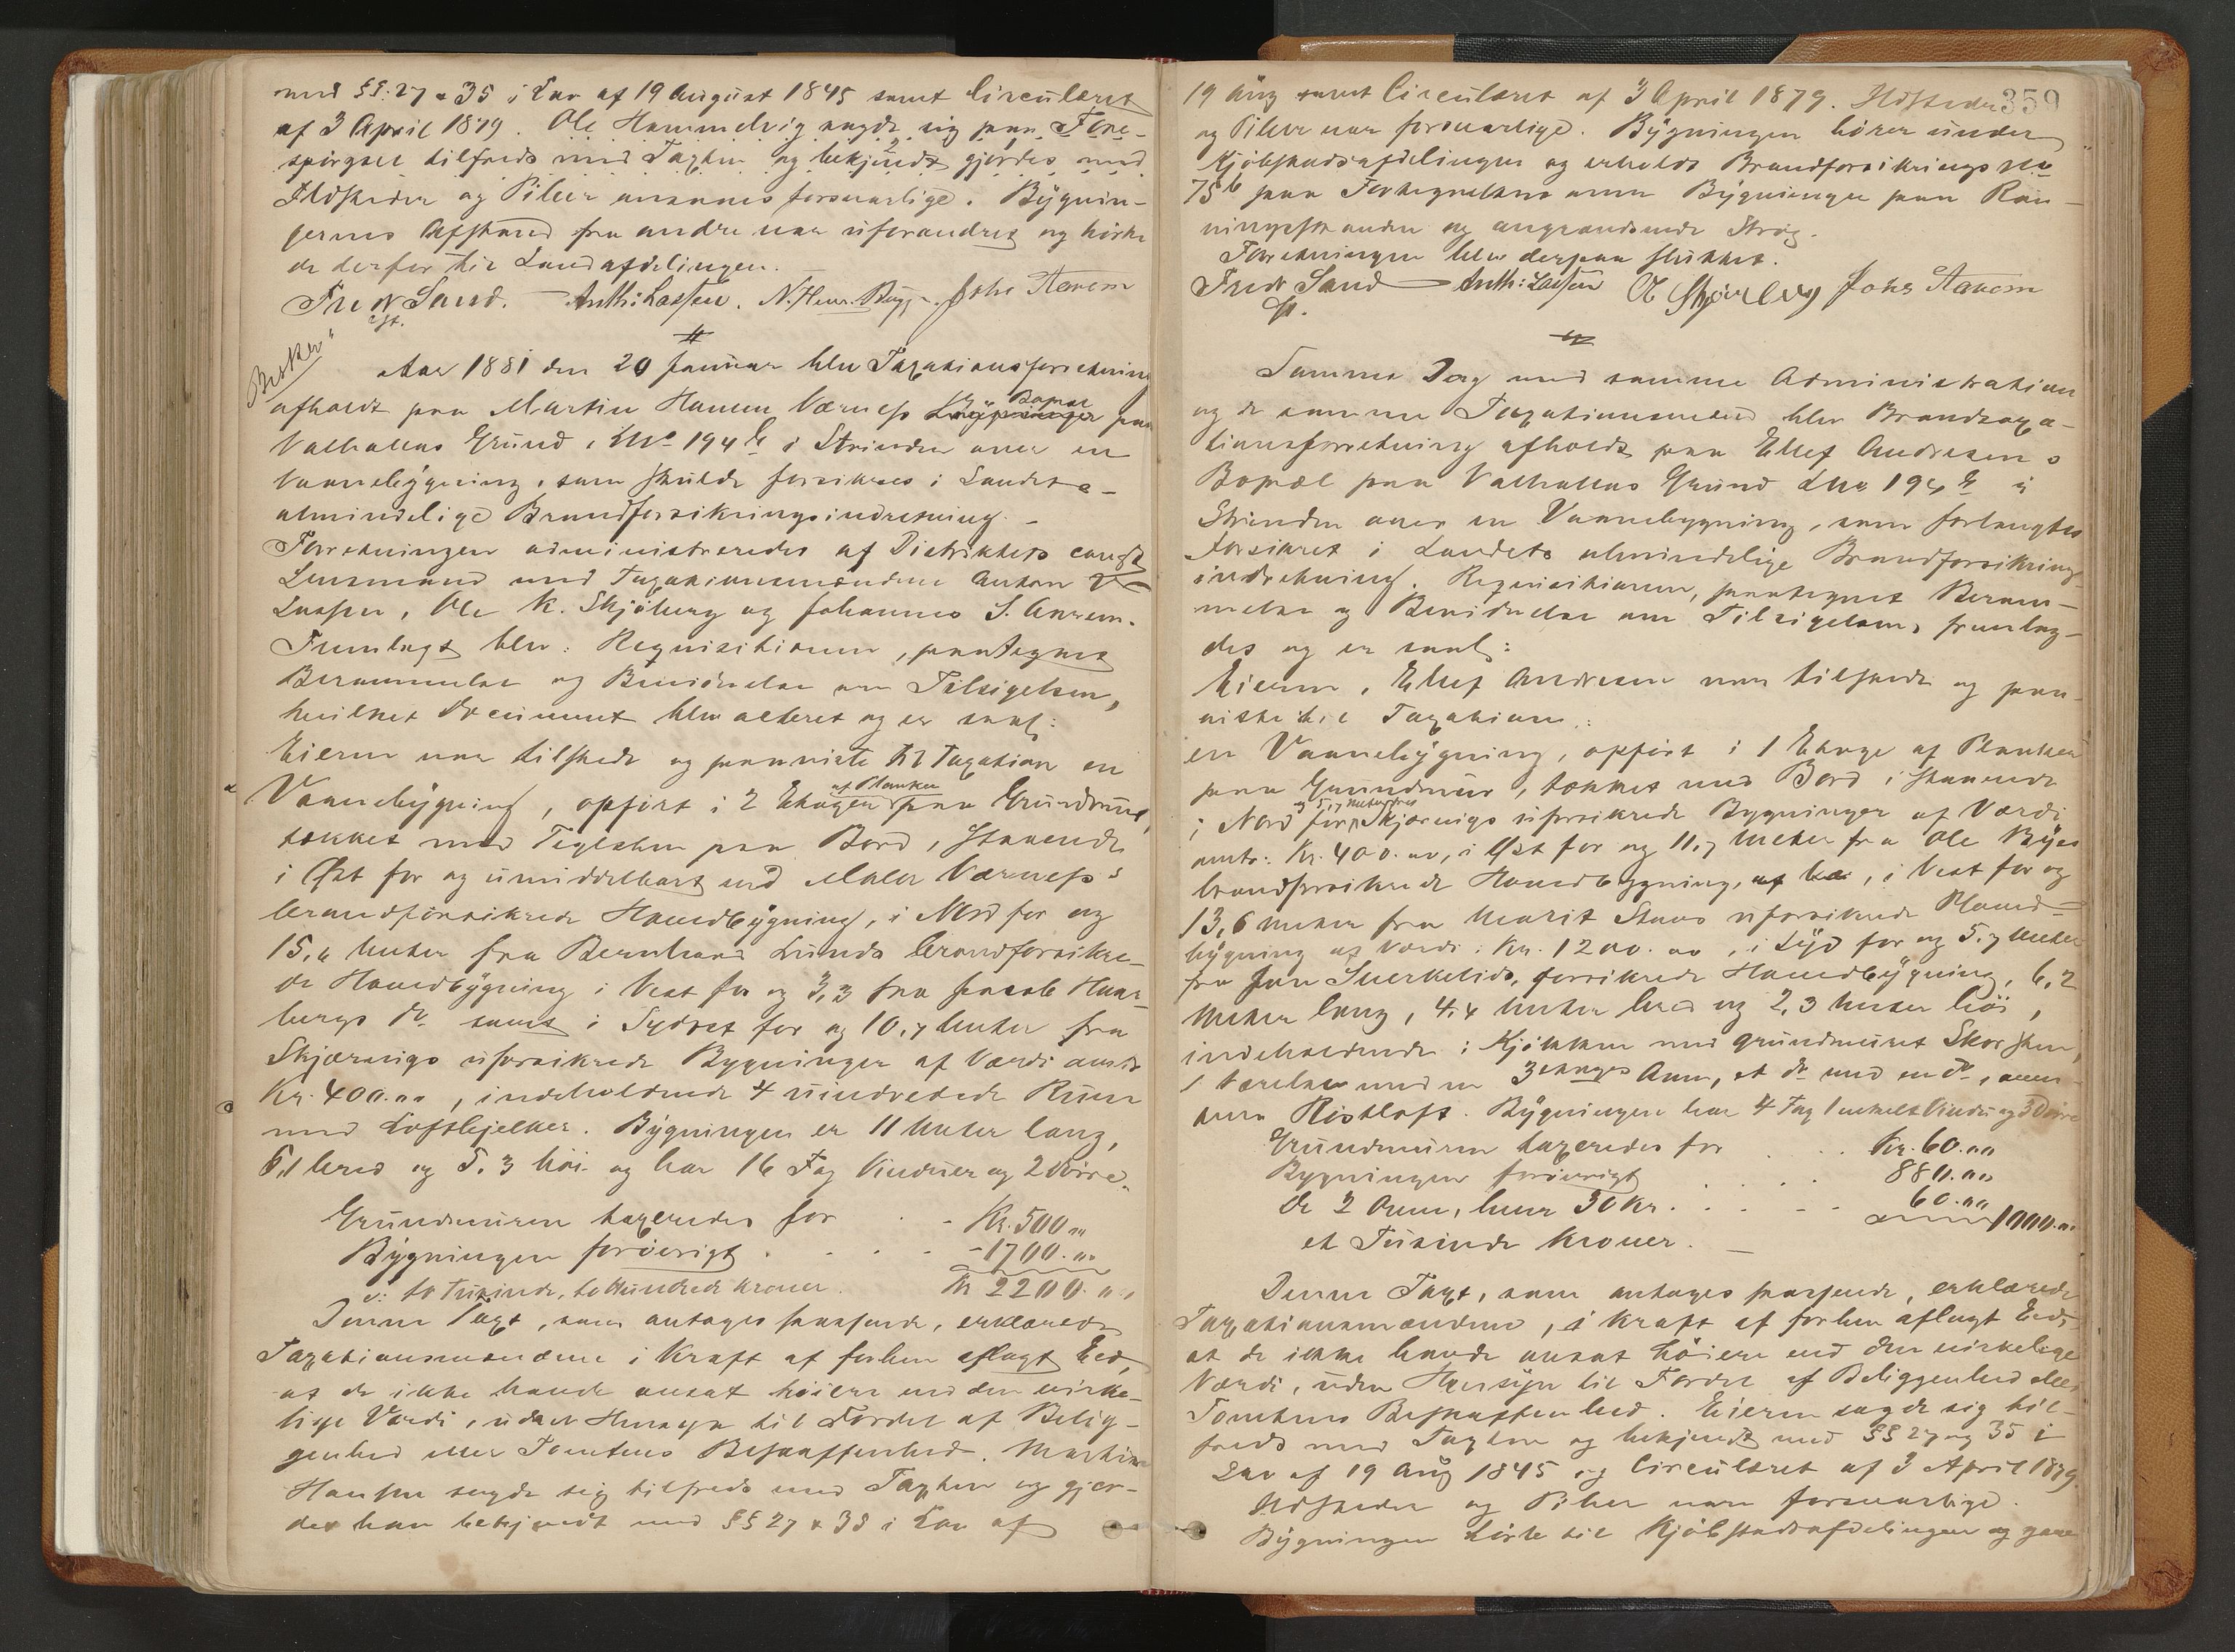 med §§. 27 & 35 i Lov af 19 August 1845 samt Circulæret
af 3 April 1879. Ole Hammelvig sagde sig paa Fore-
spörgsel tilfreds med Taxten og bekjendt gjordes med
Ildsteder og Piber ansaaes forsvarlige. Bÿgnin-
gernes Afstand fra andre var uforandret og hörte
de derfor til Landafdelingen.
Fredr Sand. Anth: Lassen. N. Henr. Bugge. Johs Aarem
cst.
Besker"
Aar 1881 den 20 Januar blev Taxationsforretning
afholdt paa Martin Hansen Værnes's Bopæl paa
Valhallas Grund, LNo 194 b i Strinden over en
Vaanebÿgning, som skulde forsikres i Landets
almindelige Brandforsikringsindretning. -
Forretningen administreredes af Distriktets const
Lensmand med Taxationsmændene Anton
Lassen, Ole K. Skjöberg og Johannes S. Aarem.
Fremlagt blev: Requisitionen, paategnet
Berammelse og Bevidnelse om Tilsigelsen,
hvilket Document blev acteret og er saal:
Eieren var tilstede og paaviste til Taxation en
Vaanebÿgning, opfört i 2 Etager af Planker paa Grundmur,
tækket med Teglsten paa Bord, staaende
i Öst for og umiddelbart ved Maler Værnes's
brandforsikrede Hovedbÿgning, i Nord for og
15,0 Meter fra Bernhard Lunds brandforsikre-
de Hovedbÿgning i Vest for og 3,3 fra Jacob Haar-
bergs do samt i Sydvest for og 10,7 Meter fra
Skjærvigs uforsikrede Bygninger af Værdi omtr
Kr. 400.00, indeholdende 4 uindredede Rum
med Loftbjelker. Bÿgningen er 11 Meter lang,
6,1 bred og 5.3 höi og har 16 Fag Vinduer og 2 Dörre.
Grundmuren taxeredes for . - Kr. 500 "
Bÿgningen foröevrigt . . . - - 1700. "
e: to Tusinde, to Hundrede Kroner. Kr 2200. "
Denne Taxt, som antages passende, erklærede
Taxationsmændene i Kraft af forhen aflagt Eed,
at de ikke havde ansat höiere end den virke-
lige Værdi, uden Hensyn til Fordel af Belig-
genhed eller Tomtens Beskaffenhed. Martin
Hansen sagde sig tilfreds med Taxten og gjor-
des han bekjendt med §§ 27 & 35 i Lov af
359
19 Aug samt Circulæret af 3 April 1879. Ildsteder
og Piber var forsvarlige. Bÿgningen hörer under
Kjöbstadsafdelingen og erholdt Brandforsikrings No
75 b paa Fortegnelsen over Bÿgninger paa Rön-
ningsstranden og angrændsende Strög.
Forretningen blev derpaa sluttet.
Fredr Sand Anth: Lassen O K Skjöberg Johs Aarem
cst.
Samme Dag med samme Administration
og de samme Taxationsmænd blev Brandtaxa-
tionsforretning afholdt paa Ellef Andresens
Bopæl paa Valhallas Grund LNo 194 b i
Strinden over en Vaanebygning, som forlangtes
forsikret i Landets almindelige Brandforsikrings-
indretning. Requisitionen, paategnet Beram-
melse og Bevidnelse om Tilsigelsen, fremlag-
des og er saal:
Eieren, Ellef Andresen var tilstede og paa-
viste til Taxation:
en Vaanebÿgning, opfört i 1 Etage af Planker
paa Grundmur, tækket med Bord, staaende
i Nord for og 5,7 Meter fra Skjærvigs uforsikrede Bygninger af Værdi
omtr: Kr. 400.00, i Öst for og 11,7 Meter fra Ole Byes
brandforsikrede Hovedbygning, i Vest for og
13,6 Meter fra Marit Staas uforsikrede Hoved-
bÿgning af Værdi: Kr. 1200.00, i Sÿd for og 5,7 Meter
fra Jon Sverkelids forsikrede Hovedbÿgning, 6,2
Meter lang, 4,4 Meter bred og 2,3 Meter höi,
indeholdende: Kjökken med grundmuret Skorsten,
1 Værelse med en 3 etages Ovn, et do med en do, oven-
paa Röstloft. Bÿgningen har 4 Fag enkelt Vindu og 3 Dörre
Grundmuren taxeredes for . . . Kr. 60.00
Bygningen foröevrigt . . . . 880.00
de 2 Ovne, hver 30 Kr. . . - - 60.00 1000.00
et Tusinde Kroner. -
Denne Taxt, som antages passende, erklærede
Taxationsmændene, i Kraft af forhen aflagt Eed,
at de ikke havde ansat höiere end den virkelige
Værdi, uden Hensÿn til Fordel af Beliggenhed eller
Tomtens Beskaffenhed. Eieren sagde sig til-
freds med Taxten og bekjendt med §§ 27 og 35 i
Lov af 19 Aug 1845 og Circulæret af 3 April 1879.
Ildsteder og Piber vare forsvarlige.
Bÿgningen hörte til Kjöbstadsafdelingen og gaves